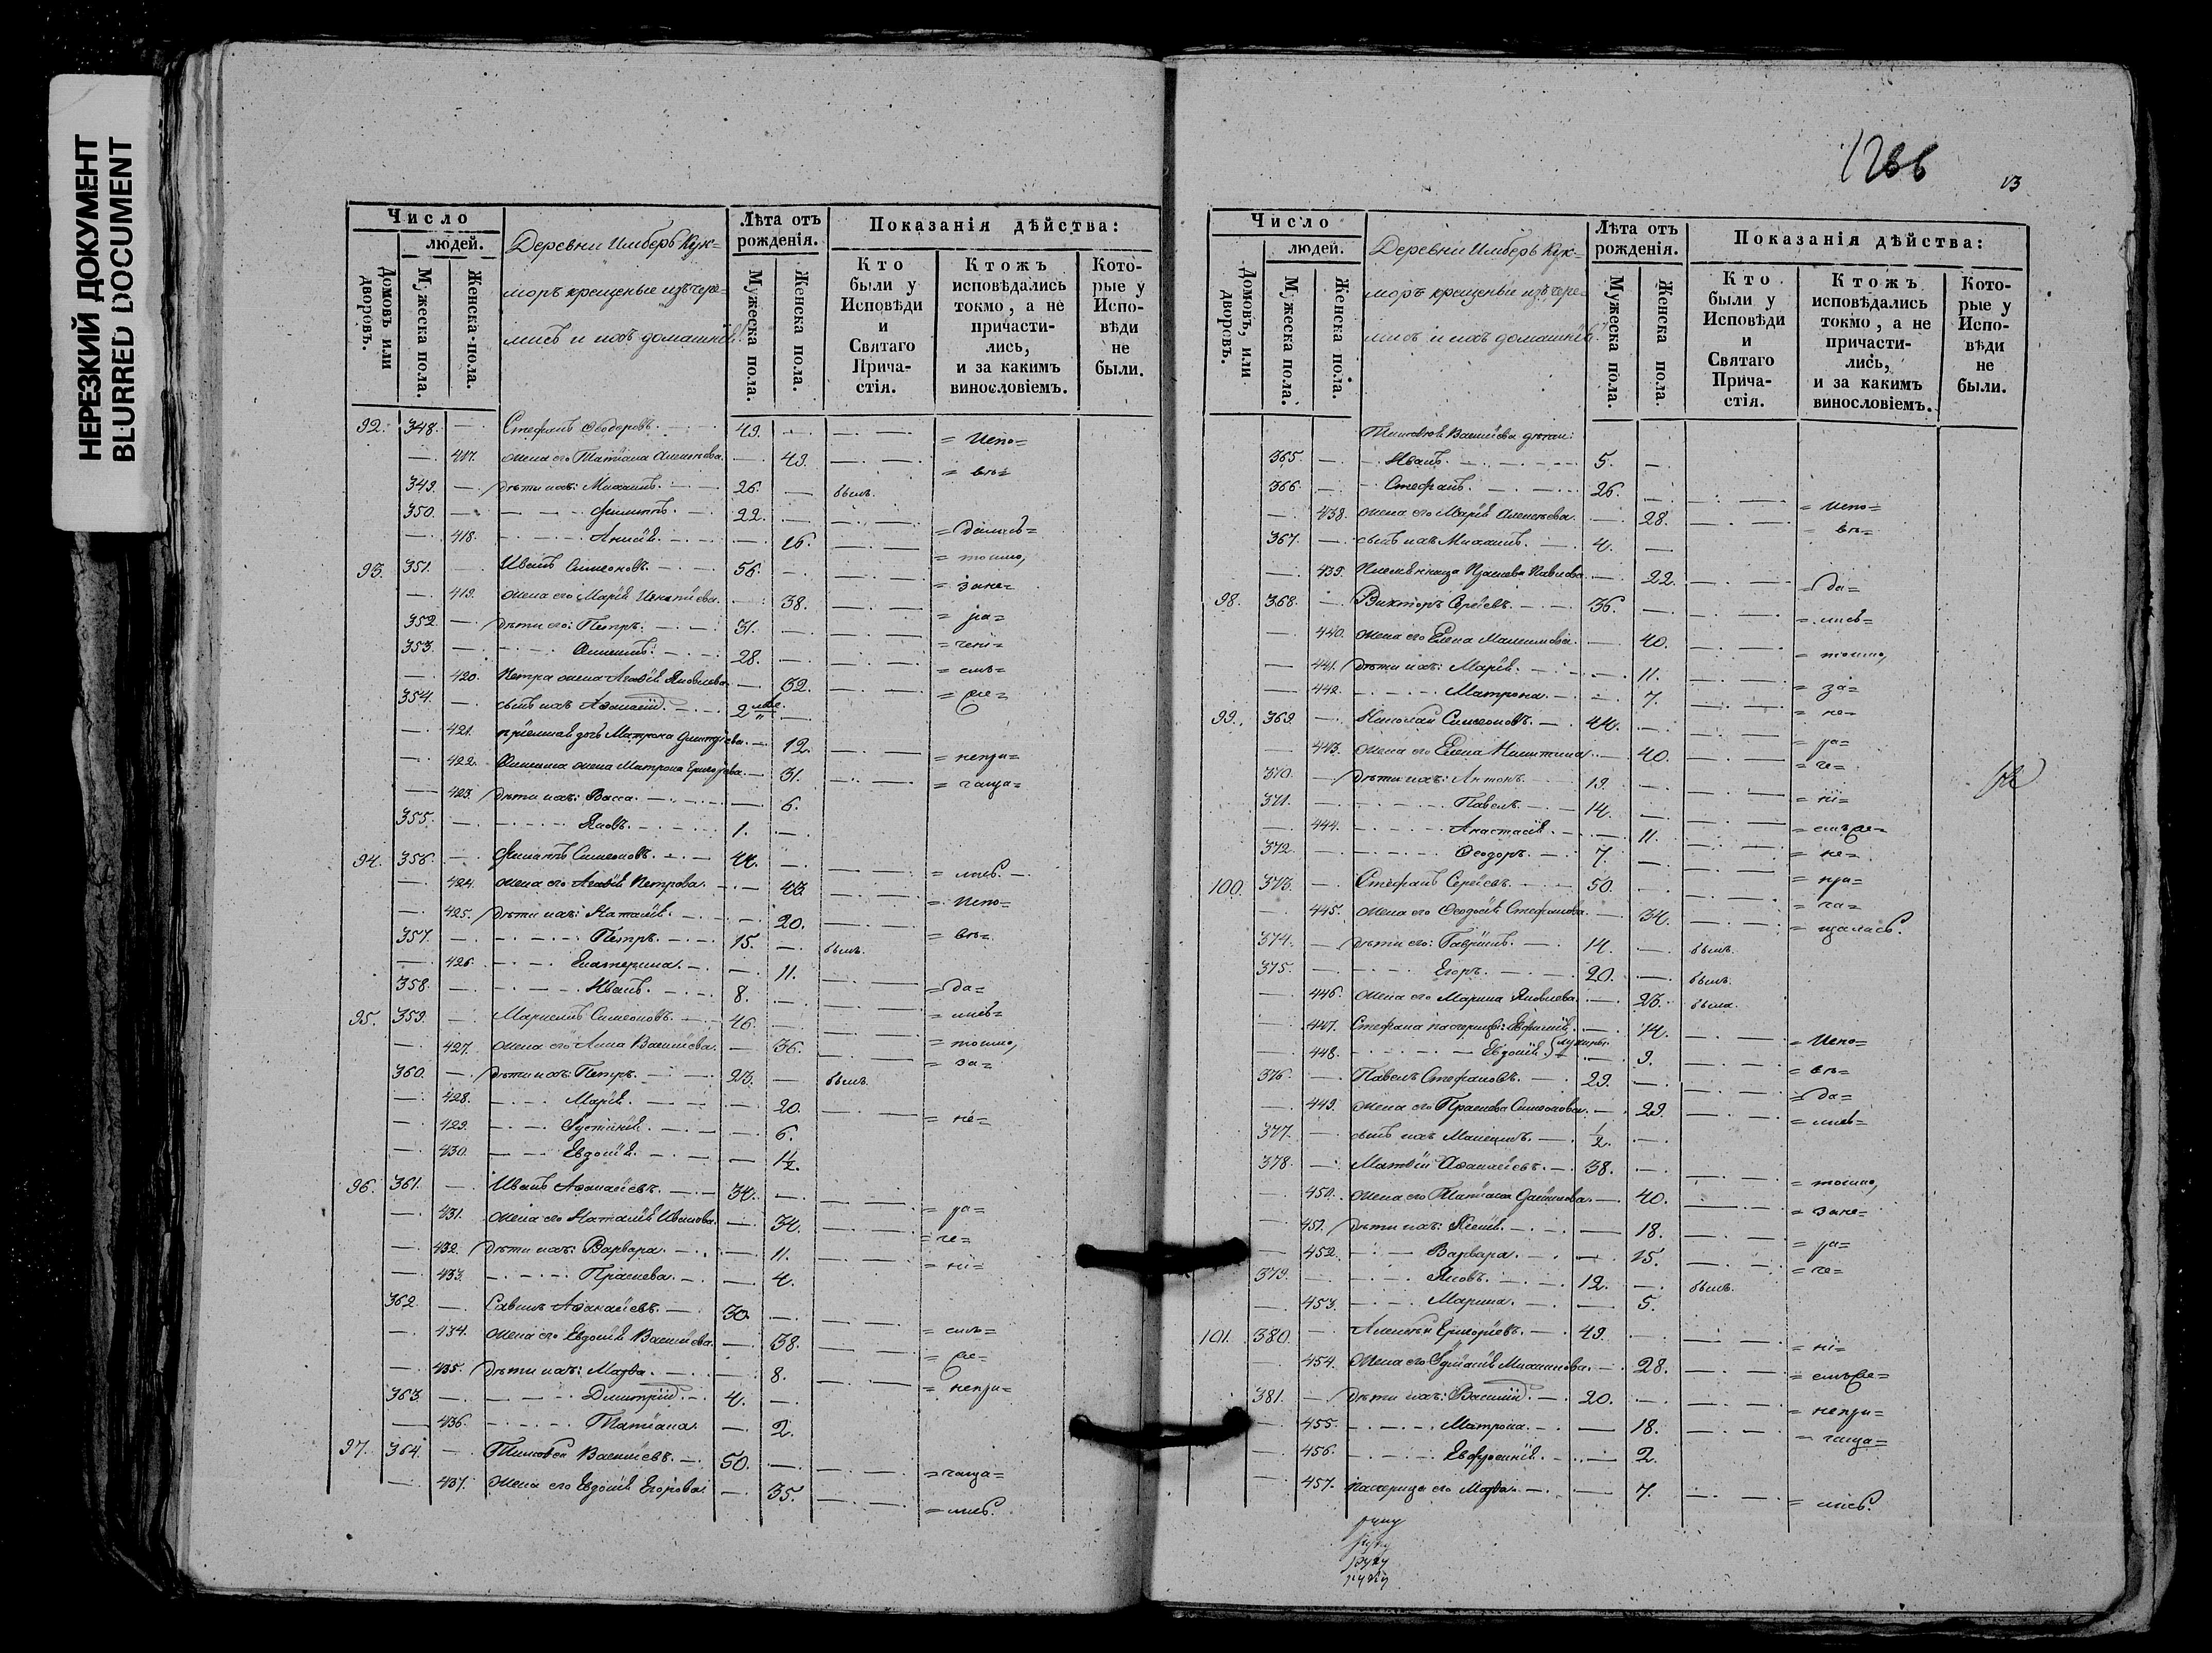 НЕРЕЗКИЙ ДОКУМЕНТ
BLURRED DOCUMENT
Число
людей.
Домовъ или дворовъ.
Мужеска пола.
Женска пола.
Деревни Имберъ Кук=
моръ крещеные изъ чере=
мисъ и ихъ домашнiе:
Лѣта отъ рожденiя.
Мужеска пола.
Женска пола.
Показанiя дѣйства:
Кто были у Исповѣди и Святаго Прича-стiя.
Ктожъ исповѣдались токмо, а не причасти-лись, и за какимъ винословiемъ.
Кото-рые у Испо-вѣди не были.
92. 348. — Стефанъ Ѳеодоровъ. 49. — = Испо=
— 417. жена его Татiана Алексѣева. — 49. = вѣ=
349. — дѣти ихъ: Михаилъ. 26. — былъ.
350. — Филиппъ. 22. —
— 418. — 16. = дались=
93. 351. — Иванъ Симеоновъ. 56. — = токмо,
— 419. жена его Марiя Игнатiева. — 38. = зане=
352. — дѣти его: Петръ. 31. — = ра=
353. — 28. — = ченi=
— 420. Петра жена Агафiя Яковлева. — 32. = емъ=
354. — сынъ ихъ Аѳанасiй. 2 мѣс. — = све=
— 421. прiемная дочь Матрона Дмитрiева. — 12.
— 422. жена Матрона Григорьева. — 31. = непри=
— 423. дѣти ихъ: Васса. — 6. = чаща=
355. — Яковъ. 1. —
94. 356. — Филиппъ Симеоновъ. 44. —
— 424. жена его Агафiя Петрова. — 43. = лись. —
— 425. дѣти ихъ: Наталiя. — 20. = Испо=
357. — Петръ. 15. — былъ. = вѣ=
— 426. Екатерина. — 11.
358. — Иванъ. 8. — = да=
95. 359. — Маркелъ Симеоновъ. 46. — = лись=
— 427. жена его Анна Васильева. — 36. = токмо,
360. — дѣти ихъ: Петръ. 23. — былъ. = за=
— 428. Марiя. — 20.
— 429. Iустинiя. — 6. = не=
— 430. Евдокiя. — 1½.
96. 361. — Иванъ Аѳанасiевъ. 34. —
— 431. жена его Наталiя Иванова. — 34. = ра=
— 432. дѣти ихъ: Варвара. — 11. = че=
— 433. Прасковья. — 4. = нi=
362. — Савелъ Аѳанасiевъ. 30. —
— 434. жена его Евдокiя Васильева. — 38. = емъ=
— 435. дѣти ихъ: Марѳа. — 8. = све=
363. — Дмитрiй. 4. — = непри=
— 436. Татiана. — 2.
97. 364. — Тимоѳей Васильевъ. 50. —
— 437. жена его Евдокiя Егорова. — 35. = чаща=
= лись.
1266
13
Число
людей.
Домовъ, или дворовъ.
Мужеска пола.
Женска пола.
Деревни Имберъ Кук=
моръ крещеные изъ чере=
мисъ и ихъ домашнiе:
Лѣта отъ рожденiя.
Мужеска пола.
Женска пола.
Показанiя дѣйства:
Кто были у Исповѣди и Святаго Прича-стiя.
Ктожъ исповѣдались токмо, а не причасти-лись, и за какимъ винословiемъ.
Кото-рые у Испо-вѣди не были.
Тимоѳея Васильева дѣти:
365. — Иванъ. 5. —
366. — Стефанъ. 26. —
— 438. жена его Марiя Алексѣева. — 28. = Испо=
367. — сынъ ихъ Михаилъ. 4. — = вѣ=
— 439. Племянница Павлова. — 22.
98. 368. — Викторъ Сергѣевъ. 36. — = да=
— 440. жена его Елена Максимова. — 40. = лись=
— 441. дѣти ихъ: Марiя. — 11. = токмо,
— 442. Матрона. — 7. = за=
99. 369. — Николай Симеоновъ. 44. — = не=
— 443. жена его Елена Никитина. — 40. = ра=
370. — дѣти ихъ: Антонъ. 19. — = че=
371. — Павелъ. 14. — = нi=
— 444. Анастасiя. — 11. = емъ све=
372. — Ѳеодоръ. 7. — = не=
100. 373. — Стефанъ Сергѣевъ. 50. — = при=
— 445. жена его Ѳеодосiя Стефанова. — 34. = ча=
374. — дѣти его: Гаврiилъ. 14. — былъ. = щались.
375. — Егоръ. 20. — былъ.
— 446. жена его Марина Яковлева. — 23. была.
— 447. Стефана падчерицы: Евфимiя. — 14.
— 448. Евдокiя. — 9. = Испо=
376. — Павелъ Стефановъ. 29. — = вѣ=
— 449. жена его Прасковья Симеонова. — 29. = да=
377. — сынъ ихъ Максимъ. ½. — = лись=
378. — Матвѣй Аѳанасiевъ. 38. —
— 450. жена его Татiана. — 40. = токмо,
— 451. дѣти ихъ: Ксенiя. — 18. = зане=
— 452. Варвара. — 15. = ра=
379. — Яковъ. 12. — былъ. = че=
— 453. Марина. — 5.
101. 380. — Алексѣй Григорiевъ. 49. —
— 454. жена его Михаилова. — 28. = нi=
381. — дѣти ихъ: Василiй. 20. — = емъ све=
— 455. Матрона. — 18. = непри=
— 456. Евфросинiя. — 2. = чаща=
— 457. падчерица его Марѳа. — 7. = лись.